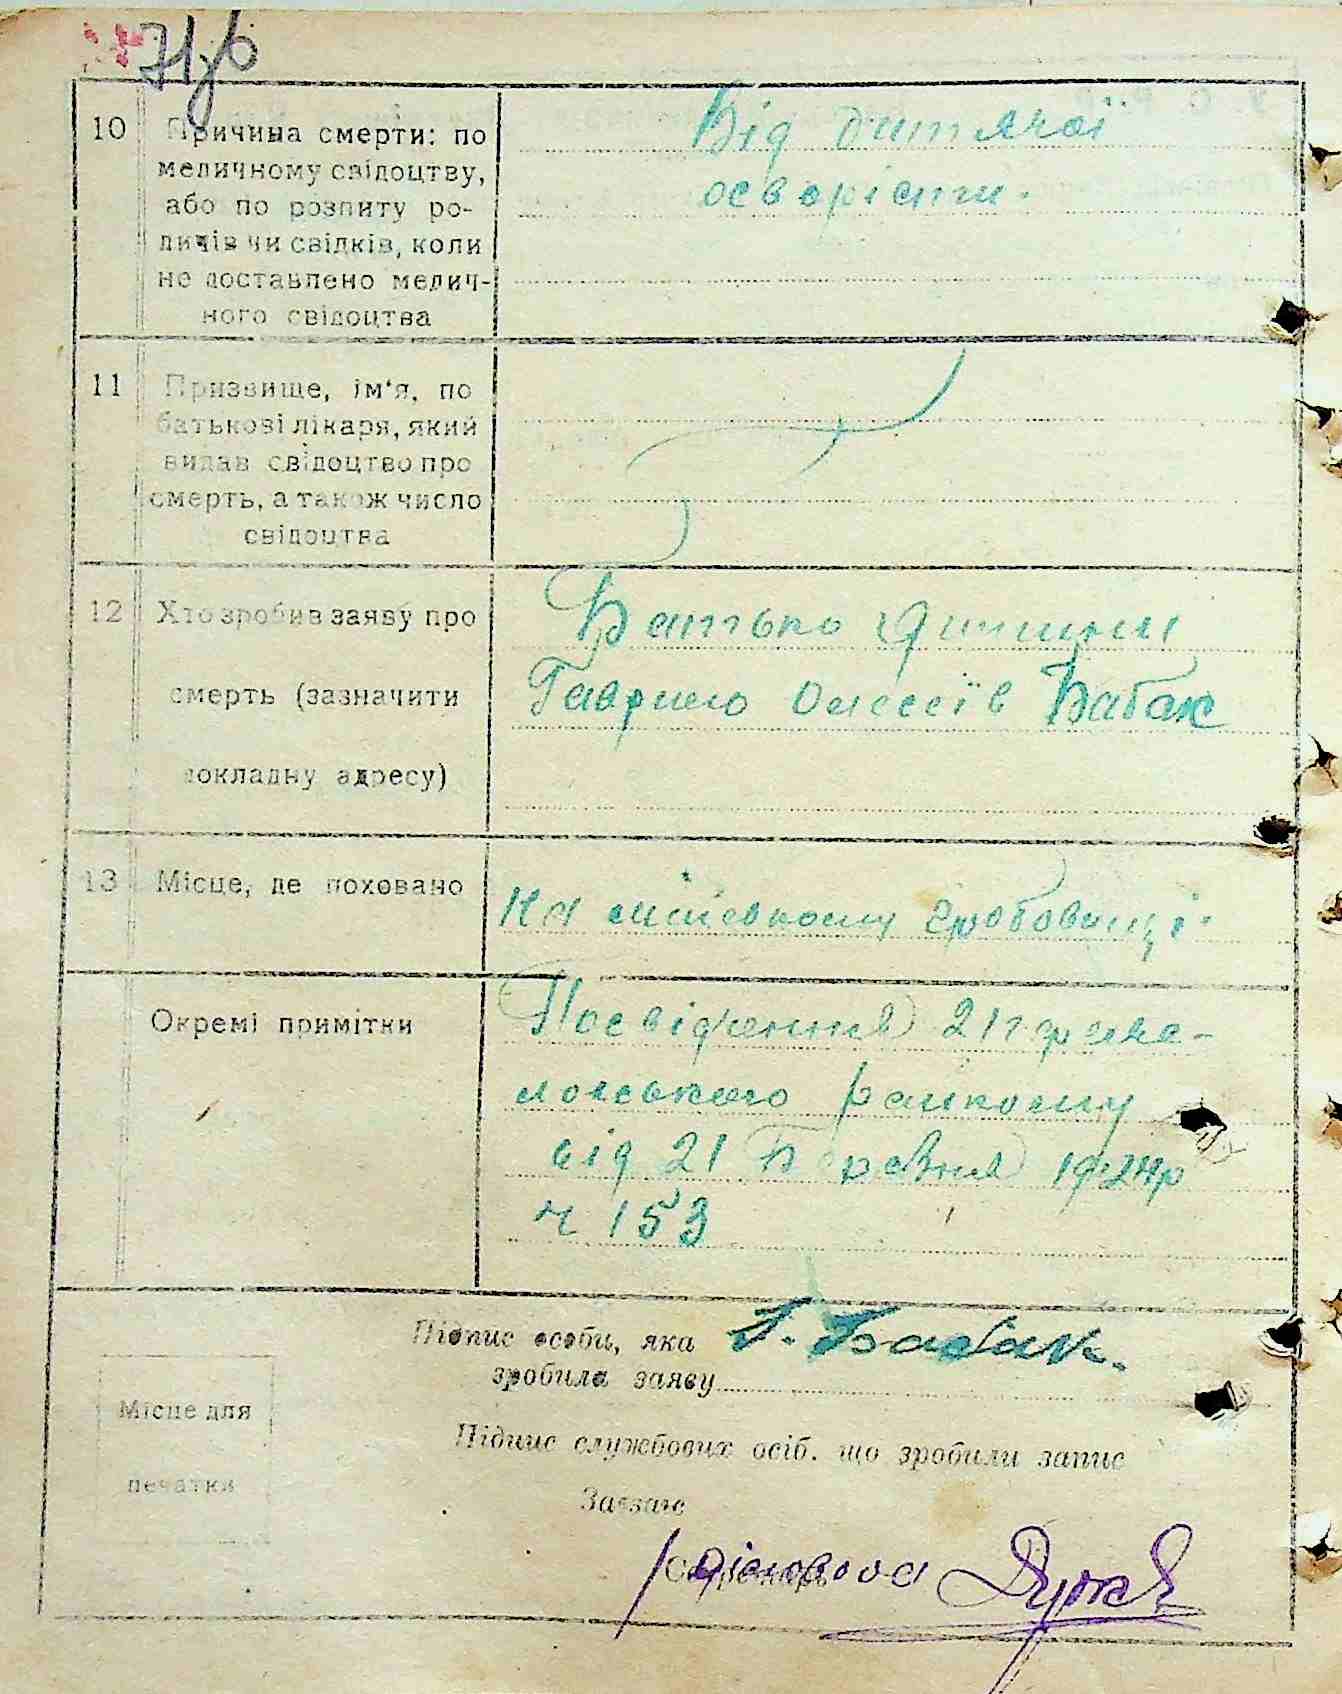 71
10 Причина смерти: по Від дитячої
медичному свідоцтву, осворісти.
або по розпиту ро-
дичів чи свідків, коли
не доставлено медич-
ного свідоцтва
11 Призвище, ім'я, по
батькові лікаря, який
видав свідоцтво про
смерть, а також число
свідоцтва
12 Хто зробив заяву про Батько дитини
смерть (зазначити Гаврило Олексіїв Бабак
докладну адресу)
13 Місце, де поховано На міському гробовищі.
Окремі примітки Посвідчення
райкому
від 21 Березня 1924р
ч 153
Підпис особи, яка Г. Бабак.
зробила заяву
Підпис службових осіб. що зробили запис
Місце для
печатки
Завзагс
Секретарь